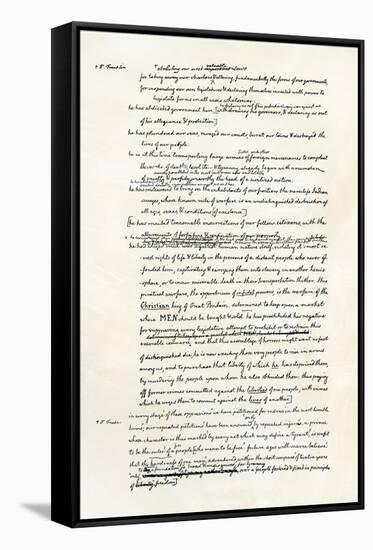 * Dr. Franklin * abolishing our most important laws
for taking away our charters & altering fundamentally the forms of our governments,
for suspending our own legislatures & declaring themselves invested with power to
legislate for us in all cases whatsoever
he has abdicated government here, [withdrawing his governors, & declaring us out
of his allegiance & protection]
he has plundered our seas, ravaged our coasts, burnt our towns & destroyed the
lives of our people
he is at this time transporting large armies of foreign mercenaries to compleat
the works of death, desolation & tyranny already begun with circumstances
of cruelty & perfidy unworthy the head of a civilized nation
he has endeavored to bring on the inhabitants of our frontiers the merciless Indian
savages, whose known rule of warfare is an undistinguished destruction of
all ages, sexes, & conditions [of existence]
[he has incited treasonable insurrections of our fellow citizens, with the
allurements of forfeiture & confiscation of our property
he has waged cruel war against human nature itself, violating it's most sa-
-cred rights of life & liberty in the persons of a distant people who never of-
fended him, captivating & carrying them into slavery in another hemis-
-phere, or to incur miserable death in their transportation thither. this
piratical warfare, the opprobrium of infidel powers, is the warfare of the
Christian king of Great Britain. determined to keep open a market
where MEN should be bought & sold he has prostituted his negative
for suppressing every legislative attempt to prohibit or to restrain this
execrable commerce: and that this assemblage of horrors might want no fact
of distinguished die, he is now exciting those very people to rise in arms
among us, and to purchase that liberty of which he has deprived them,
by murdering the people upon whom he also obtruded them: thus paying
off former crimes committed against the liberties of one people, with crimes
which he urges them to commit against the lives of another]
in every stage of these oppressions we have petitioned for redress in the most humble
terms; our repeated petitions have been answered by repeated injuries. a prince
whose character is thus marked by every act which may define a tyrant, is unfit
to be the ruler of a people [who mean to be free. future ages will scarce believe
that the hardiness of one man, adventured within the short compass of twelve years
only over a people fostered & fixed in principles
of freedom]